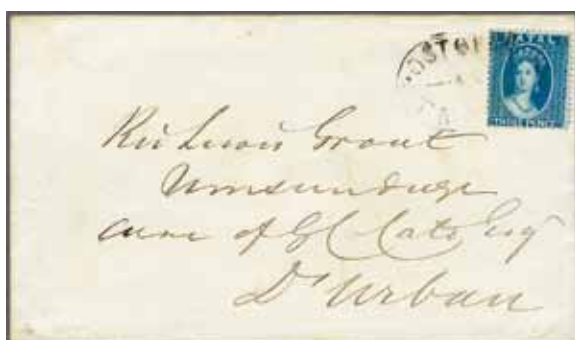 NATAL
POST OFF
THREE PENCE
Rev Lewis Grout
Umsunduzi
care of G C Cato Esq
D'Urban